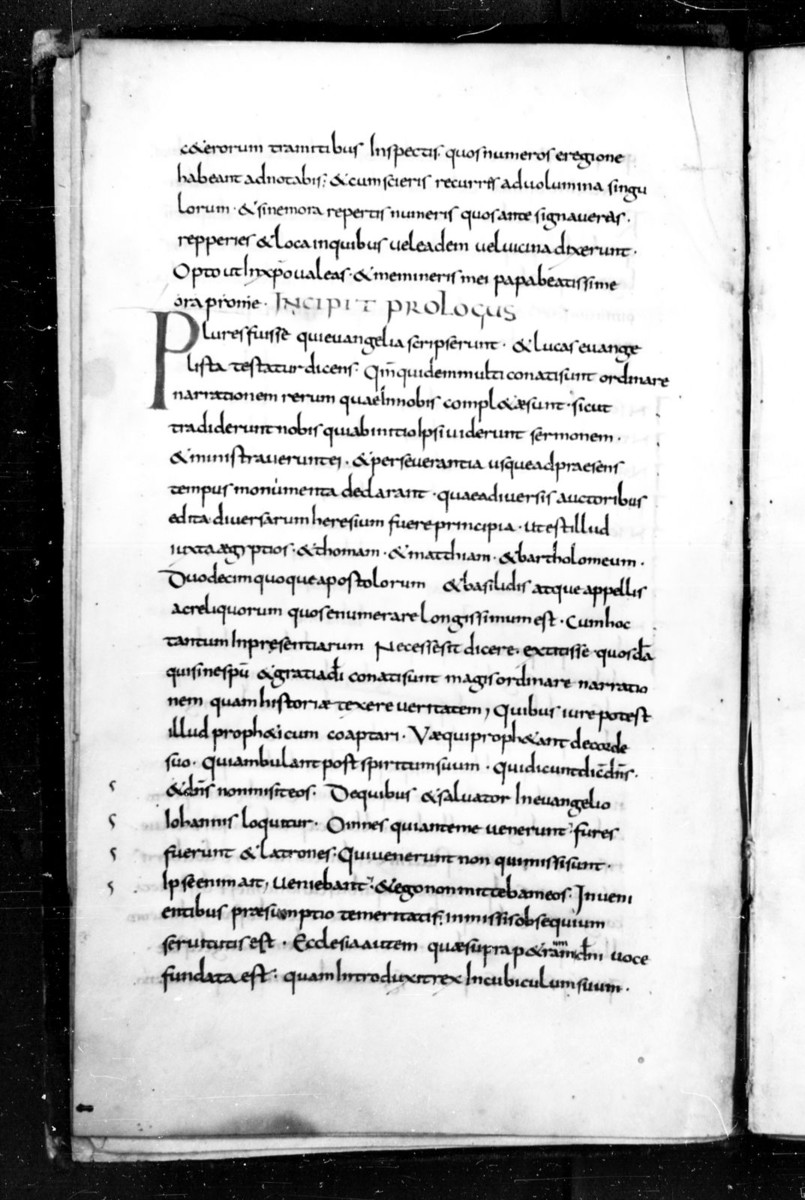 c&erorum tramitibus Inspectis quos numeros eregione
habeant adnotabis; & cum scieris recurres ad volumina singu
lorum · & sinemora repertis numeris quos ante signaveras ·
repperies & loca inquibus vel eadem vel vicina dixerunt ·
Opto ut In xp̄o valeas · & memineris mei papa beatissime
ora pro me · INCIPIT PROLOGUS
Plures fuisse qui evangelia scripserunt · & lucas evange
lista testatur dicens · Qm̄ quidem multi conati sunt ordinare
narrationem rerum quae In nobis compl&ae sunt · sicut
tradiderunt nobis qui ab initio Ipsi viderunt sermonem ·
& ministraverunt ei · & perseverantia usque ad praesens
tempus monumenta declarant · quae a diversis auctoribus
edita diversarum heresium fuere principia · ut est illud
iuxta aegyptios · & thomam · & matthiam · & bartholomeum ·
Duodecim quoque apostolorum & basilidis atque appellis
ac reliquorum quos enumerare longissimum est · Cum hoc
tantum In pręsentiarum Necesse sit dicere · extitisse quosdā
qui sine sp̄u & gratia dī conati sunt magis ordinare narratio
nem quam historiæ texere veritatem, Quibus iure potest
illud proph&icum coaptari · Væ qui proph&ant de corde
suo · Qui ambulant post spiritum suum · Qui dicunt dic̄ dn̄s ·
& dn̄s non misit eos · De quibus & salvator In evangelio
Iohannis loquitur · Omnes qui ante me venerunt · fures
fuerunt & latrones · Qui venerunt non qui missi sunt ·
Ipse enim ait, veniebant · & ego non mittebam eos · In veni
entibus præsumptio temeritatis; in missis obsequium
servitutis est · Ecclesia autem quæ supra p&ram dn̄i voce
fundata est · quam Introduxit rex In cubiculum suum ·